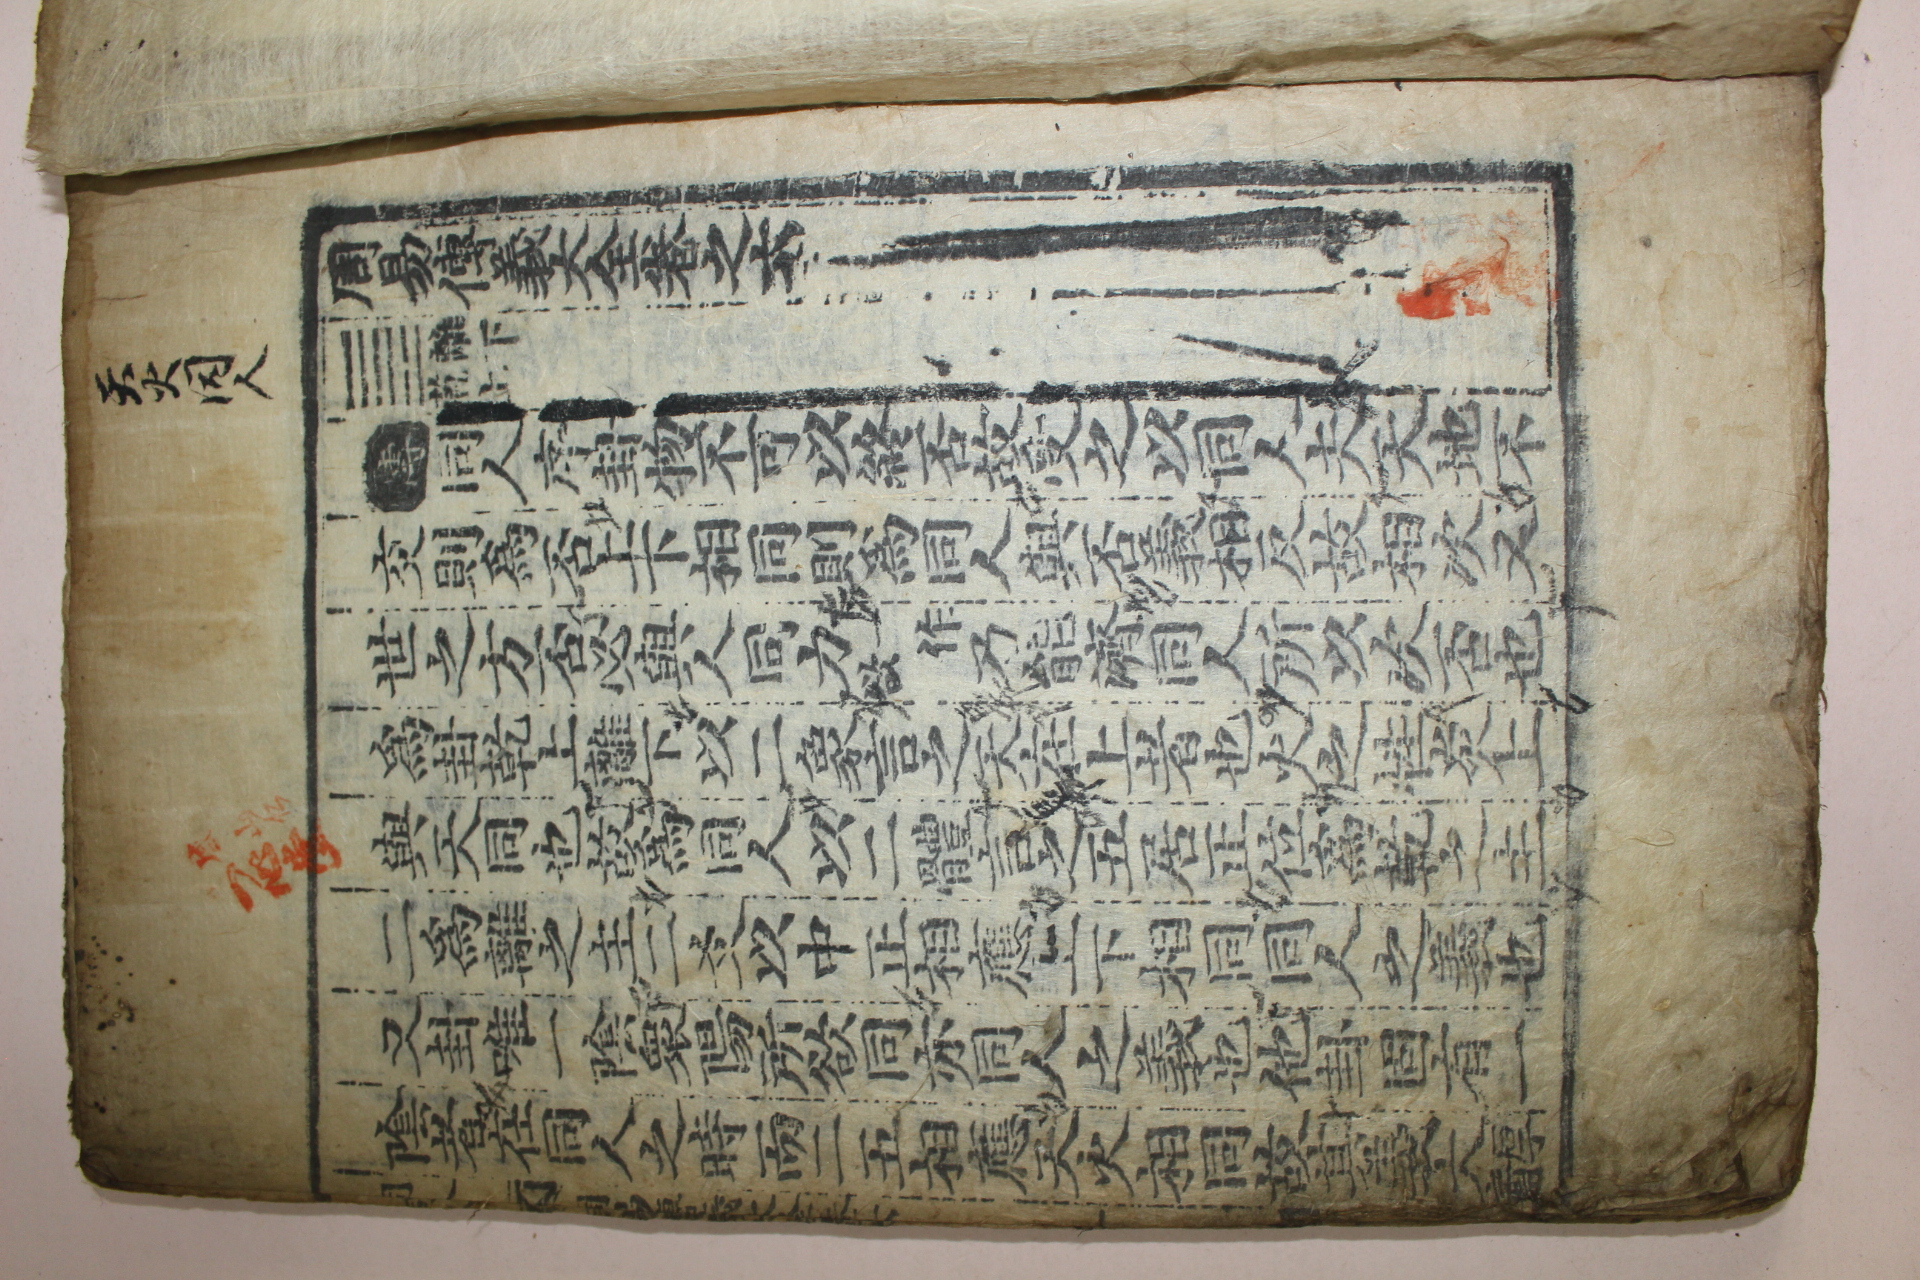 天火同人
周易傳義大全卷之六
離下
乾上
傳同人序卦物不可以終否故受之以同人夫天地不
交則爲否上下相同則爲同人與否義相反故相次又
世之方否必與人同力作乃能濟同人所以次否也
爲卦乾上離下以二象言之天在上者也火之性炎上
與天同也故爲同人以二體言之五居正位爲乾之主
二爲離之主二爻以中正相應上下相同同人之義也
又卦唯一陰衆陽所欲同亦同人之義也他卦固有一
陰者在同人之時而二五相應天火相同故其義大